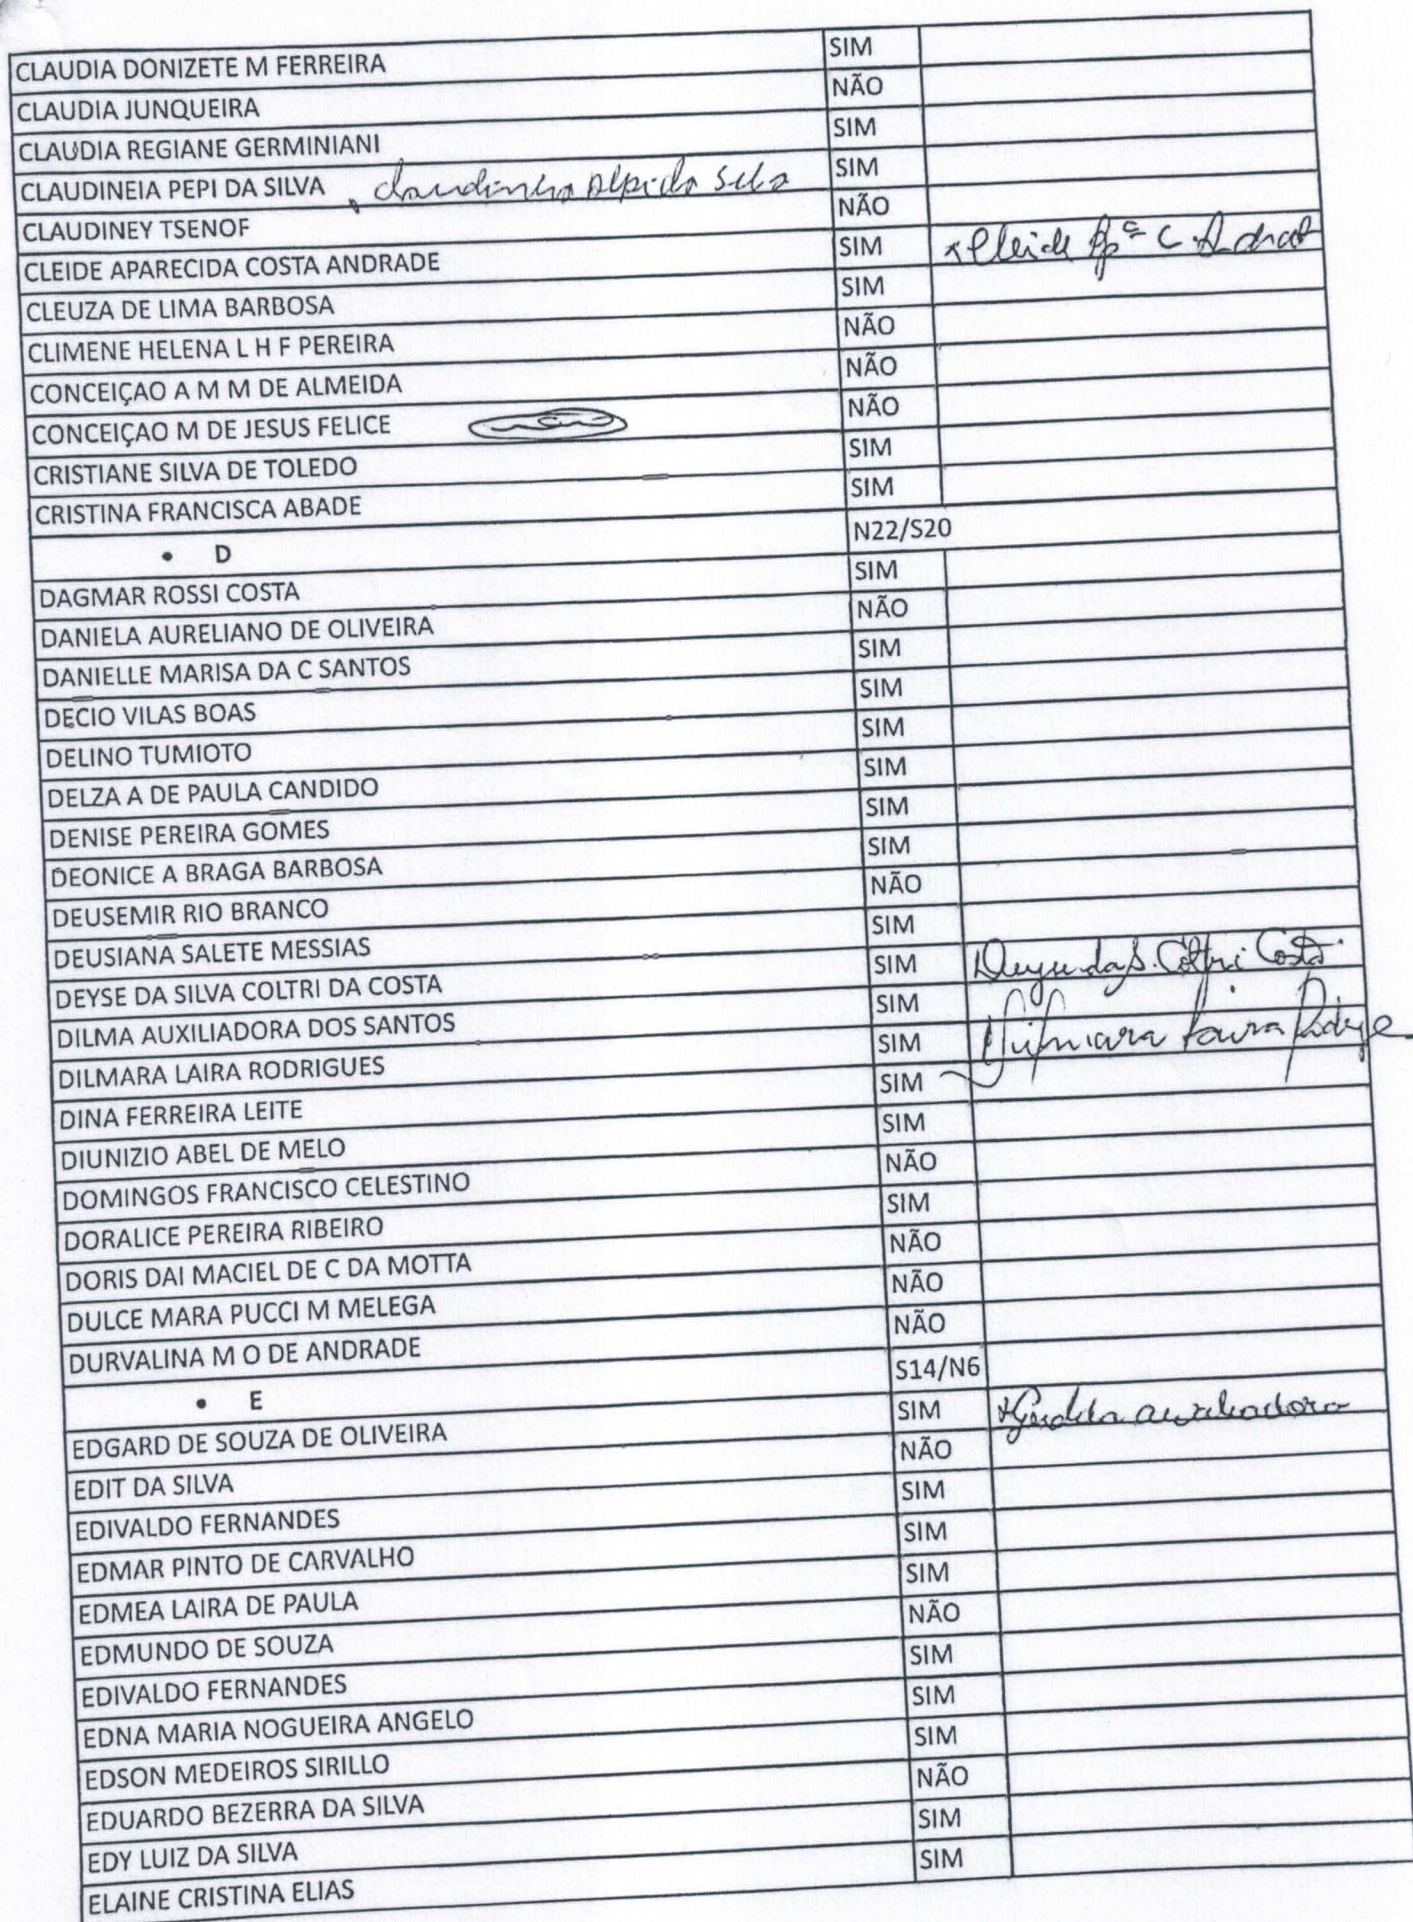 CLAUDIA DONIZETE M FERREIRA SIM
CLAUDIA JUNQUEIRA NÃO
CLAUDIA REGIANE GERMINIANI SIM
CLAUDINEIA PEPI DA SILVA SIM
CLAUDINEY TSENOF NÃO
CLEIDE APARECIDA COSTA ANDRADE SIM Cleide Apª C Andrade
CLEUZA DE LIMA BARBOSA SIM
CLIMENE HELENA L H F PEREIRA NÃO
CONCEIÇAO A M M DE ALMEIDA NÃO
CONCEIÇAO M DE JESUS FELICE NÃO
CRISTIANE SILVA DE TOLEDO SIM
CRISTINA FRANCISCA ABADE SIM
• D N22/S20
DAGMAR ROSSI COSTA SIM
DANIELA AURELIANO DE OLIVEIRA NÃO
DANIELLE MARISA DA C SANTOS SIM
DECIO VILAS BOAS SIM
DELINO TUMIOTO SIM
DELZA A DE PAULA CANDIDO SIM
DENISE PEREIRA GOMES SIM
DEONICE A BRAGA BARBOSA SIM
DEUSEMIR RIO BRANCO NÃO
DEUSIANA SALETE MESSIAS SIM
DEYSE DA SILVA COLTRI DA COSTA SIM Deyse da S. Coltri Costa
DILMA AUXILIADORA DOS SANTOS SIM
DILMARA LAIRA RODRIGUES SIM Dilmara Laira Rodrigues
DINA FERREIRA LEITE SIM
DIUNIZIO ABEL DE MELO SIM
DOMINGOS FRANCISCO CELESTINO NÃO
DORALICE PEREIRA RIBEIRO SIM
DORIS DAI MACIEL DE C DA MOTTA NÃO
DULCE MARA PUCCI M MELEGA NÃO
DURVALINA M O DE ANDRADE NÃO
• E S14/N6
EDGARD DE SOUZA DE OLIVEIRA SIM
EDIT DA SILVA NÃO
EDIVALDO FERNANDES SIM
EDMAR PINTO DE CARVALHO SIM
EDMEA LAIRA DE PAULA SIM
EDMUNDO DE SOUZA NÃO
EDIVALDO FERNANDES SIM
EDNA MARIA NOGUEIRA ANGELO SIM
EDSON MEDEIROS SIRILLO SIM
EDUARDO BEZERRA DA SILVA NÃO
EDY LUIZ DA SILVA SIM
ELAINE CRISTINA ELIAS SIM